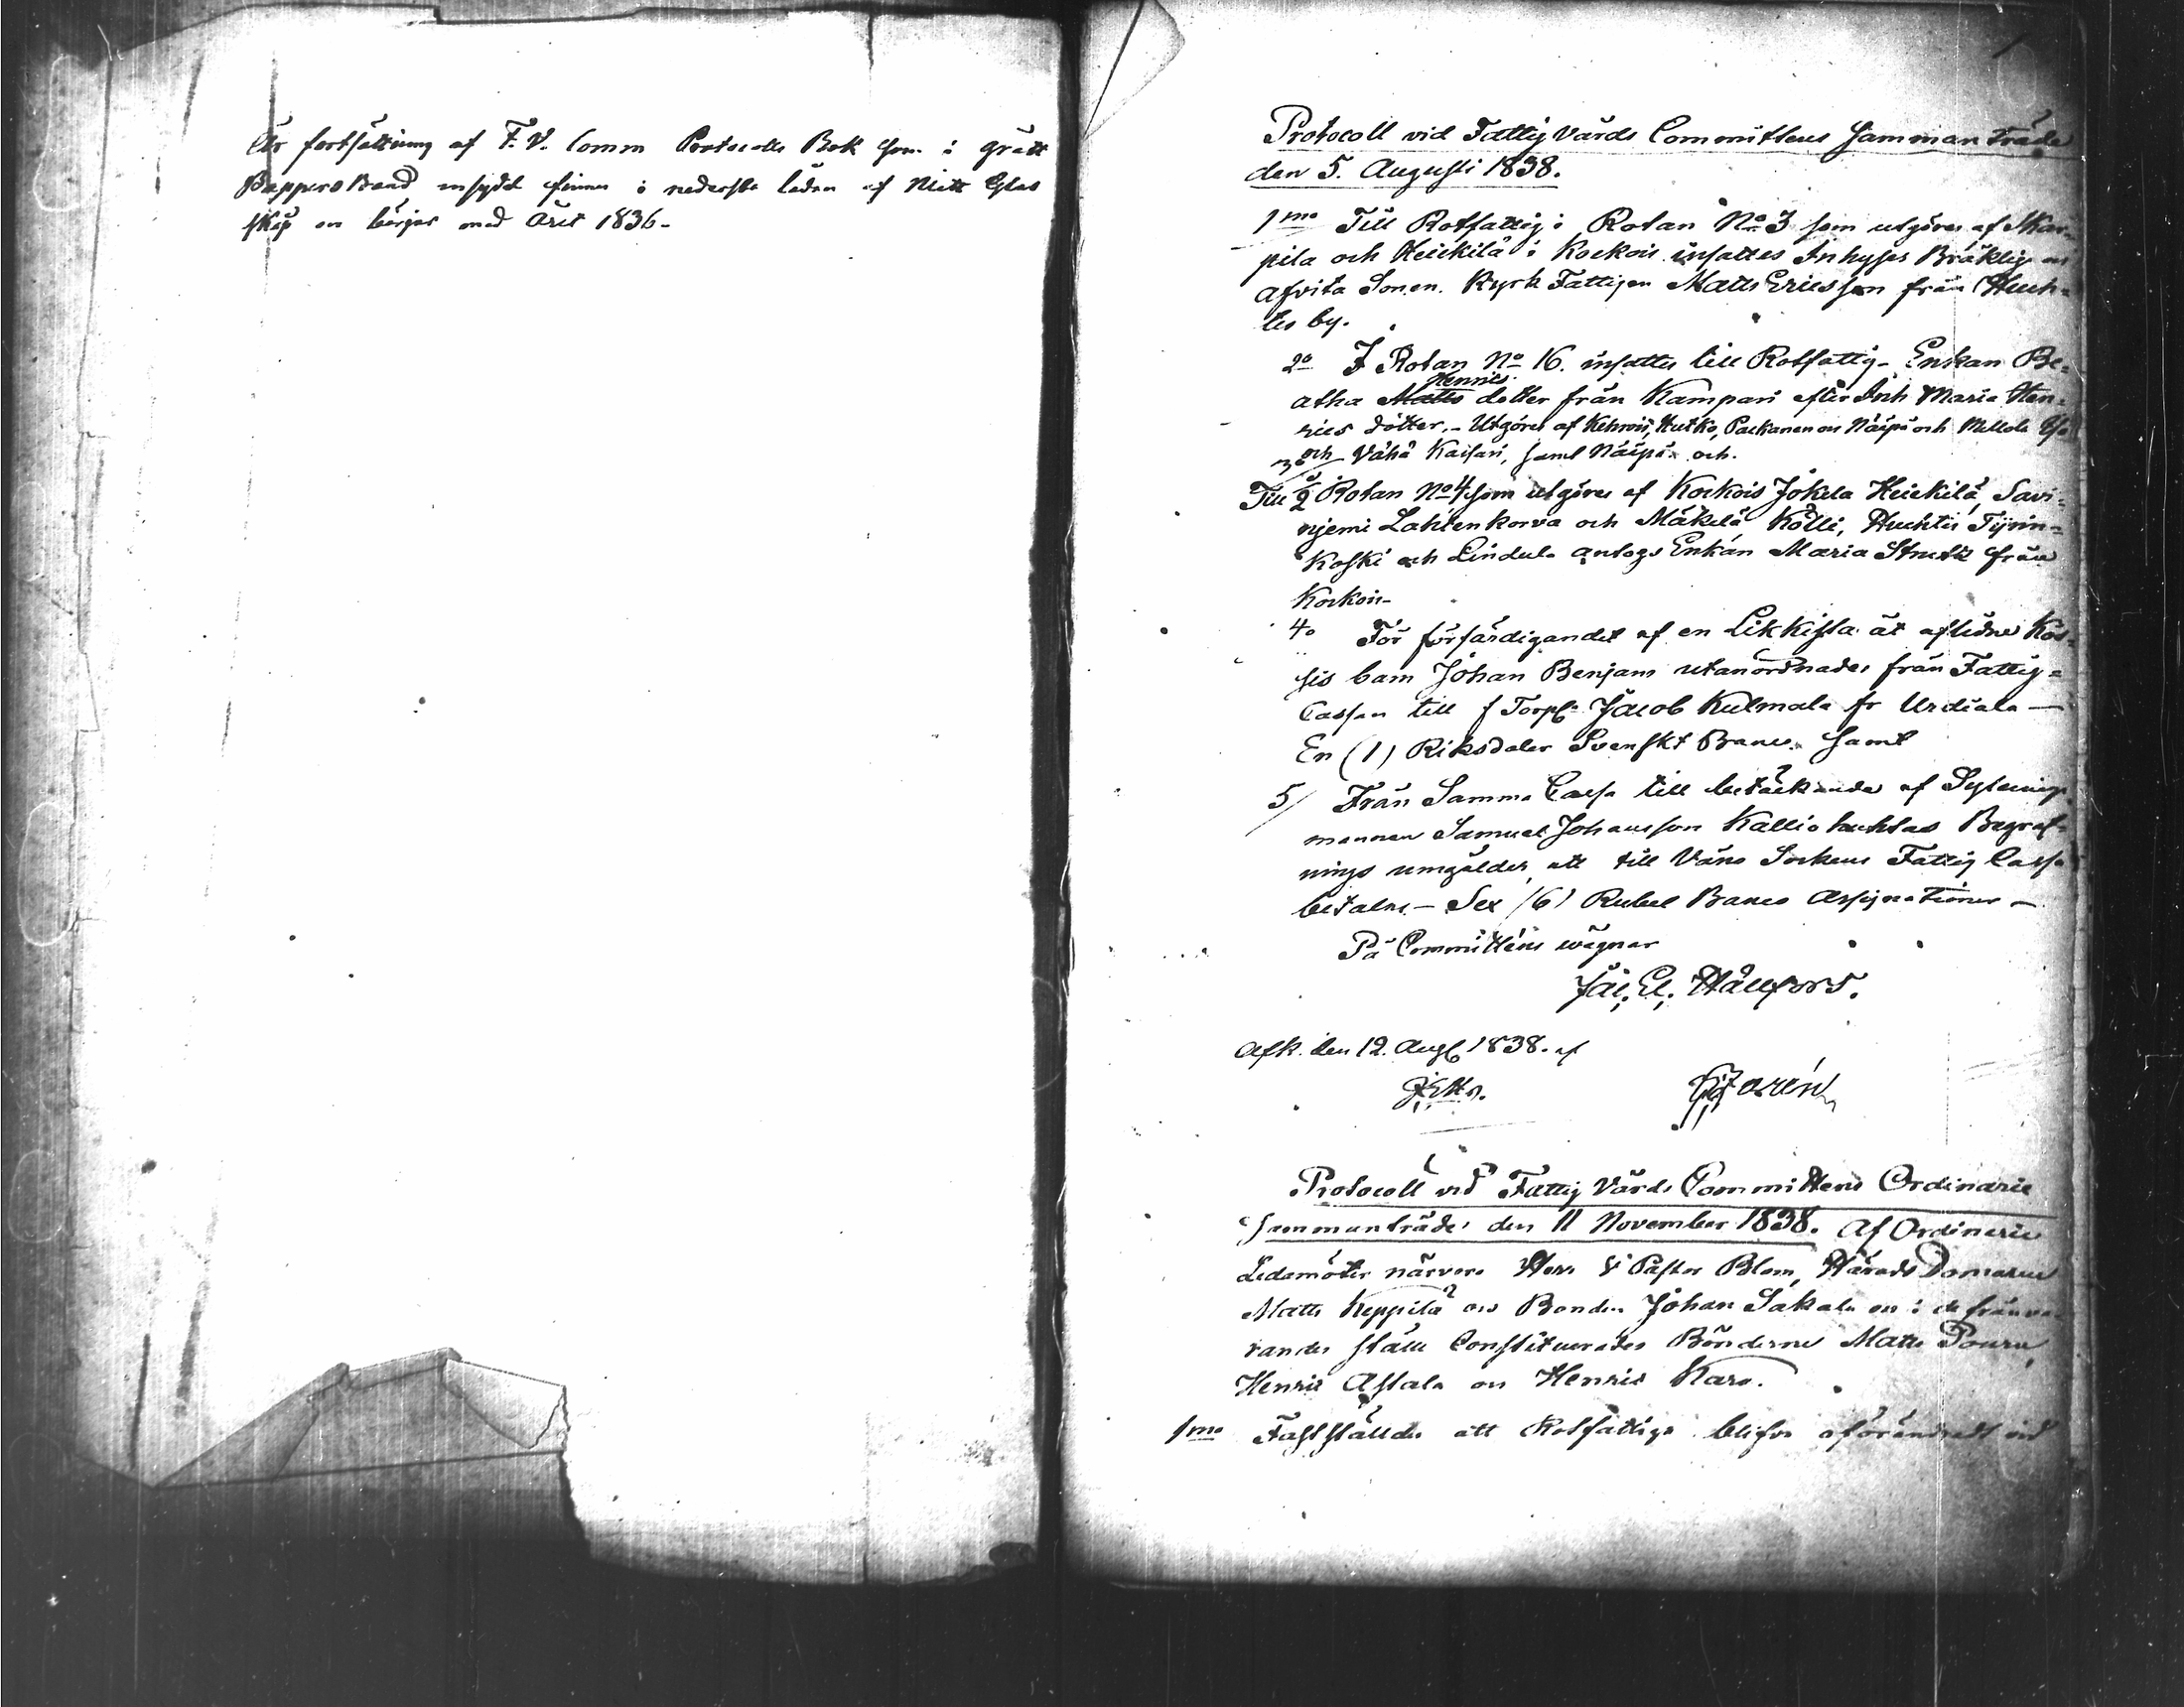 Är fortsättning af F. V. Comm Protocolls Bok som i grått
Pappers Band insydd finnes i nedersta lådan af Mitt Glas
skåp börjar med Året 1836-
Protocoll vid Fattig Vårds Committeens Sammanträde
den 5. Augusti 1838.
1mo Till Rotfattig i Rotan No 3 som utgöres af Skar-
pila och Heickilä i Kockois insattes Inhyses Bräklig
afvita Sonen. Kyrk Fattigen Matts Ericsson från Huch-
tis by.
2o I Rotan No 16. insattes till Rotfattig- Enkan Be-
atha Matts Henrics dotter från Kampari efter Inh Maria Hen-
rics dotter.- Utgöres af Kehrois, Hutko, Packanen Näipi och Mellola
3o och Vähä Kaifari, samt Näipi och.
Till 1/2 Rotan No 4 som utgöres af Kockois Jokela Heickilä, Savi-
njemi Lahtenkorva och Mäkelä Kölli, Huchtis Tyrin-
koski och Lindula antogs Enkan Maria från
Kockois-
4o För förfärdigandet af en Likkista åt aflidne
barn Johan Benjam utanordnades från Fattig-
Cassan till f Torp: Jacob Kulmala fr Urdiala —
En (1) Riksdaler Svenskt Banco. samt
5/ Från Samma Cassa till betäckande af Sytnings
mannen Samuel Johansson Kalliohuhtas Begraf-
nings umgälder, att till Vånå Sockens Fattig Cassa
betalas — Sex (6) Rubel Banco Assignationer —
På Committéns wägnar
Jac. El. Hällfors.
Afk. den 12. Aug 1838. af
J.E.H.
Protocoll vid Fattig Vårds Committens Ordinarie
Sammanträde den 11 November 1838. Af Ordinarie
Ledamöter närvoro Herr V Pastor Blom, Härads Domaren
Matts Heppilä Bonden Johan Sakala i de frånva-
randes ställe Constituerades Bönderne Matts Pouru,
Henric Astala Henric Karo.
1mo Fastställdes att Rotfattige blifva oförändradt vid